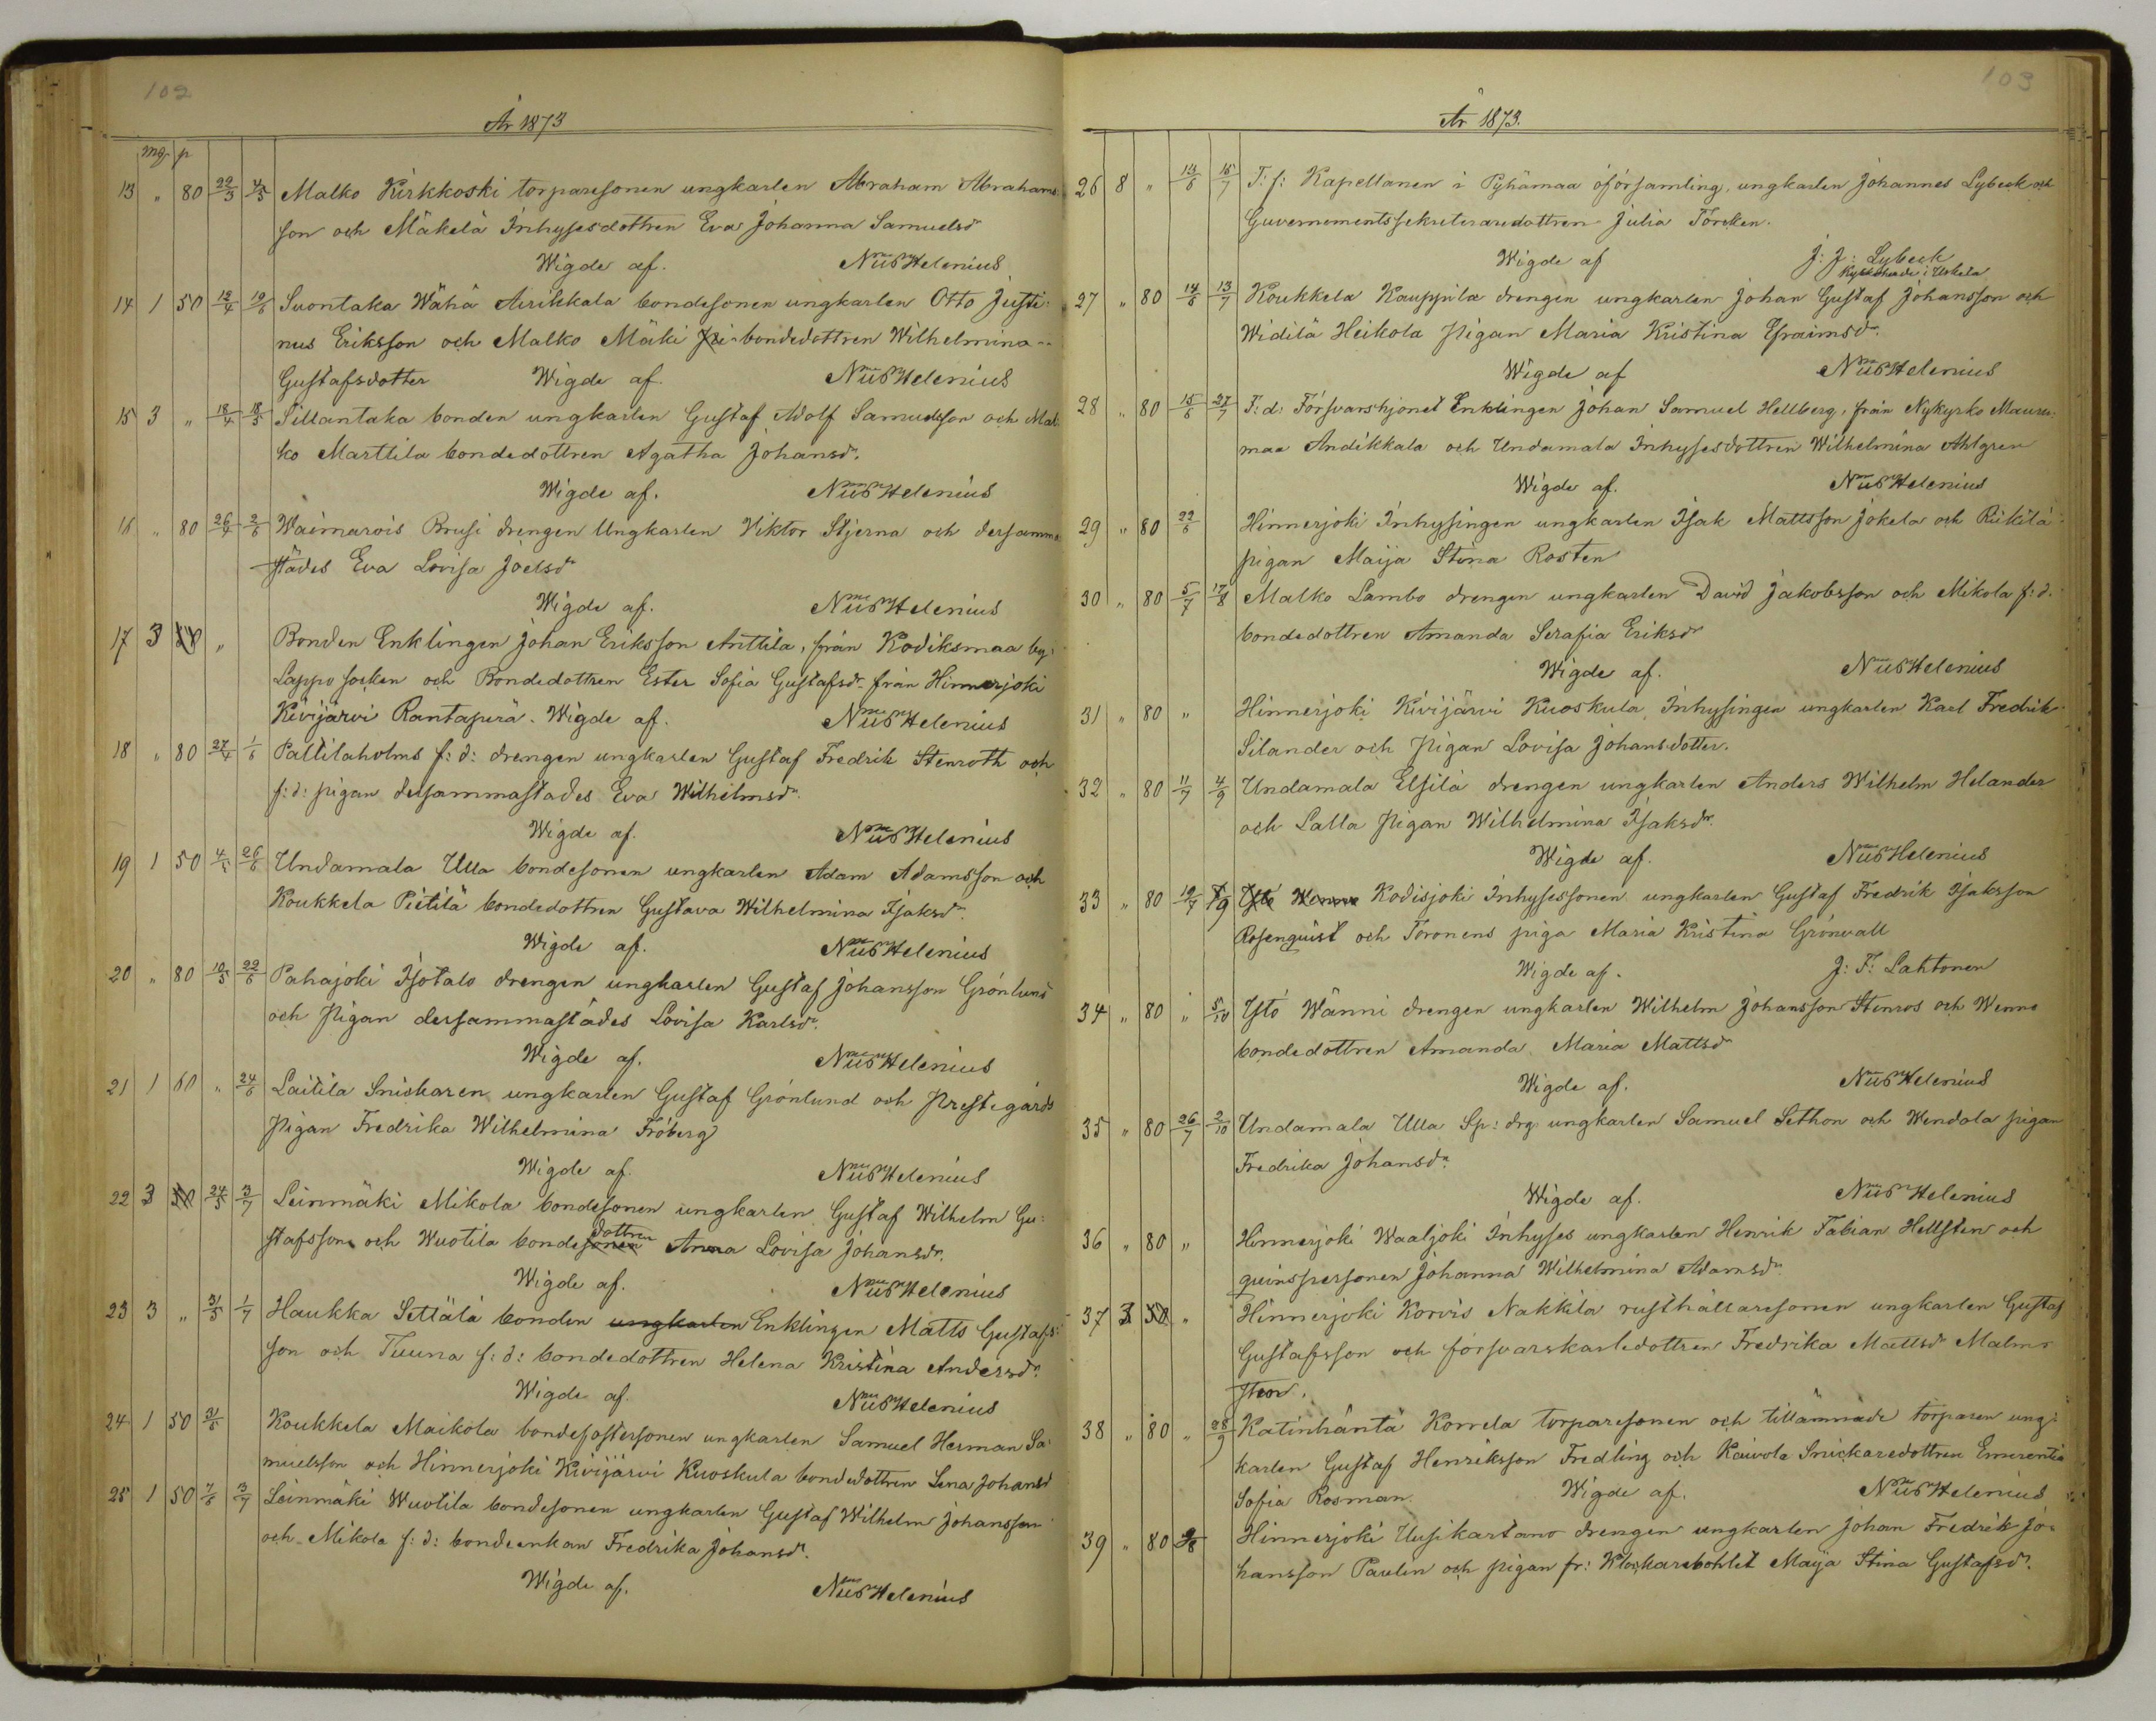 102
År 1873
mg p
13 " 80 22/3 4/5 Malko Kirkkoski torparesonen ungkarlen Abraham Abrahams-
son och Mäkelä Inhysesdottren Eva Johanna Samuelsdr
Wigde af. Nils Helenius
14 1 50 12/4 19/6 Suontaka Wähä Airikkala bondesonen ungkarlen Otto Justi-
nus Eriksson och Malko Mäki bondedottren Wilhelmina
Gustafsdotter Wigde af. Nils Helenius
15 3 " 18/4 18/5 Sillantaka bonden ungkarlen Gustaf Adolf Samuelsson och Mal-
ko Marttila bondedottren Agatha Johansdr.
Wigde af. Nils Helenius
16 " 80 26/4 2/6 Waimarois Prusi drengen Ungkarlen Viktor Stjerna och dersamma-
städes Eva Lovisa Joelsdr
Wigde af. Nils Helenius
17 3 " Bonden Enklingen Johan Eriksson Anttila, från Kodiksmaa by i
Lappo socken och Bondedottren Ester Sofia Gustafsdr från Hinnerjoki
Kivijärvi Rantaperä. Wigde af. Nils Helenius
18 " 80 27/4 1/6 Palttilaholms f: d: drengen ungkarlen Gustaf Fredrik Stenroth och
f: d: pigan dersammastades Eva Wilhelmsdr.
Wigde af. Nils Helenius
19 1 50 4/5 26/6 Undamala Ulla bondesonen ungkarlen Adam Adamsson och
Koukkela Pietilä bondedottren Gustava Wilhelmina Isaksdr.
Wigde af. Nils Helenius
20 " 80 10/5 22/6 Pahajoki Isotalo drengen ungkarlen Gustaf Johansson Grönlund
och Pigan dersammastädes Lovisa Karlsdr.
Wigde af. Nils Helenius
21 1 60 " 24/6 Laitila Snickaren ungkarlen Gustaf Grönlund och Prestegårds
Pigan Fredrika Wilhelmina Fröberg
Wigde af. Nils Helenius
22 3 24/5 3/7 Leinmäki Mikola bondesonen ungkarlen Gustaf Wilhelm Gu-
stafsson och Wuotila bondesonen dottren Anna Lovisa Johansdr.
Wigde af. Nils Helenius
23 3 " 31/5 1/7 Haukka Settälä bonden ungkarlen Enklingen Matts Gustafs-
son och Tuuna f: d: bondedottren Helena Kristina Andersdr.
Wigde af. Nils Helenius
24 1 50 31/5 Koukkela Maikola bondefostersonen ungkarlen Samuel Herman Sa-
muelsson och Hinnerjoki Kivijärvi Kuoskula bondedottren Lena Johansd
25 1 50 7/6 3/7 Leinmäki Wuotila bondesonen ungkarlen Gustaf Wilhelm Johansson
och Mikola f: d: bondeenkan Fredrika Johansdr.
Wigde af. Nils Helenius
103
År 1873.
26 8 " 13/6 15/7 T. f: Kapellanen i Pyhämaa öförsamling, ungkarlen Johannes Lybeck och
Guvernementssekreteraredottren Julia Forcken.
Wigde af J: J: Lybeck
Kyrkoherde i Uskela
27 " 80 14/6 13/7 Koukkela Kauppila drengen ungkarlen Johan Gustaf Johansson och
Widilä Heikola Pigan Maria Kristina Efraimsdr.
Wigde af Nils Helenius
28 " 80 15/6 27/7 F: d: Försvarshjonet Enklingen Johan Samuel Hellberg, från Nykyrko Mauru-
maa Andikkala och Undamala Inhysesdottren Wilhelmina Ahlgren
Wigde af. Nils Helenius
29 " 80 22/6 Hinnerjoki Inhysingen ungkarlen Isak Mattsson Jokela och Riikilä
pigan Maija Stina Rosten
30 " 80 5/7 17/8 Malko Lambo drengen ungkarlen David Jakobsson och Mikola f: d.
bondedottren Amanda Serafia Eriksdr
Wigde af. Nils Helenius
31 " 80 " Hinnerjoki Kivijärvi Kuoskula Inhysingen ungkarlen Karl Fredrik
Silander och Pigan Lovisa Johansdotter.
32 " 80 11/7 4/9 Undamala Elsilä drengen ungkarlen Anders Wilhelm Helander
och Lalla Pigan Wilhelmina Isaksdr.
Wigde af. Nils Helenius
33 " 80 19/7 Ysto Wenne Kodisjoki Inhysessonen ungkarlen Gustaf Fredrik Isaksson
Rosenquist och Toronens piga Maria Kristina Grönvall
Wigde af. J: F: Lahtonen
34 " 80 " 5/10 Ystö Wänni drengen ungkarlen Wilhelm Johansson Stenros och Wenne
bondedottren Amanda Maria Mattsdr
Wigde af. Nils Helenius
35 " 80 26/7 2/10 Undamala Ulla Sp: drg: ungkarlen Samuel Sethon och Wendola pigan
Fredrika Johansdr.
Wigde af. Nils Helenius
36 " 80 " Hinnerjoki Waaljoki Inhyses ungkarlen Henrik Fabian Hellsten och
qvinspersonen Johanna Wilhelmina Adamsdr.
37 3 50 " Hinnerjoki Korvis Nakkila rusthållaresonen ungkarlen Gustaf
Gustafsson och försvarskarledottren Fredrika Mattsdr Malm-
sten.
38 " 80 " 28/9 Katinhäntä Korrela torparesonen och tillämnade torparen ung-
karlen Gustaf Henriksson Fredling och Kaivola Snickaredottren Emerentia
Sofia Rosman. Wigde af. Nils Helenius
39 " 80 Hinnerjoki Uusikartano drengen ungkarlen Johan Fredrik Jo-
hansson Paulin och pigan fr: Klockarebohlet Maija Stina Gustafsdr.